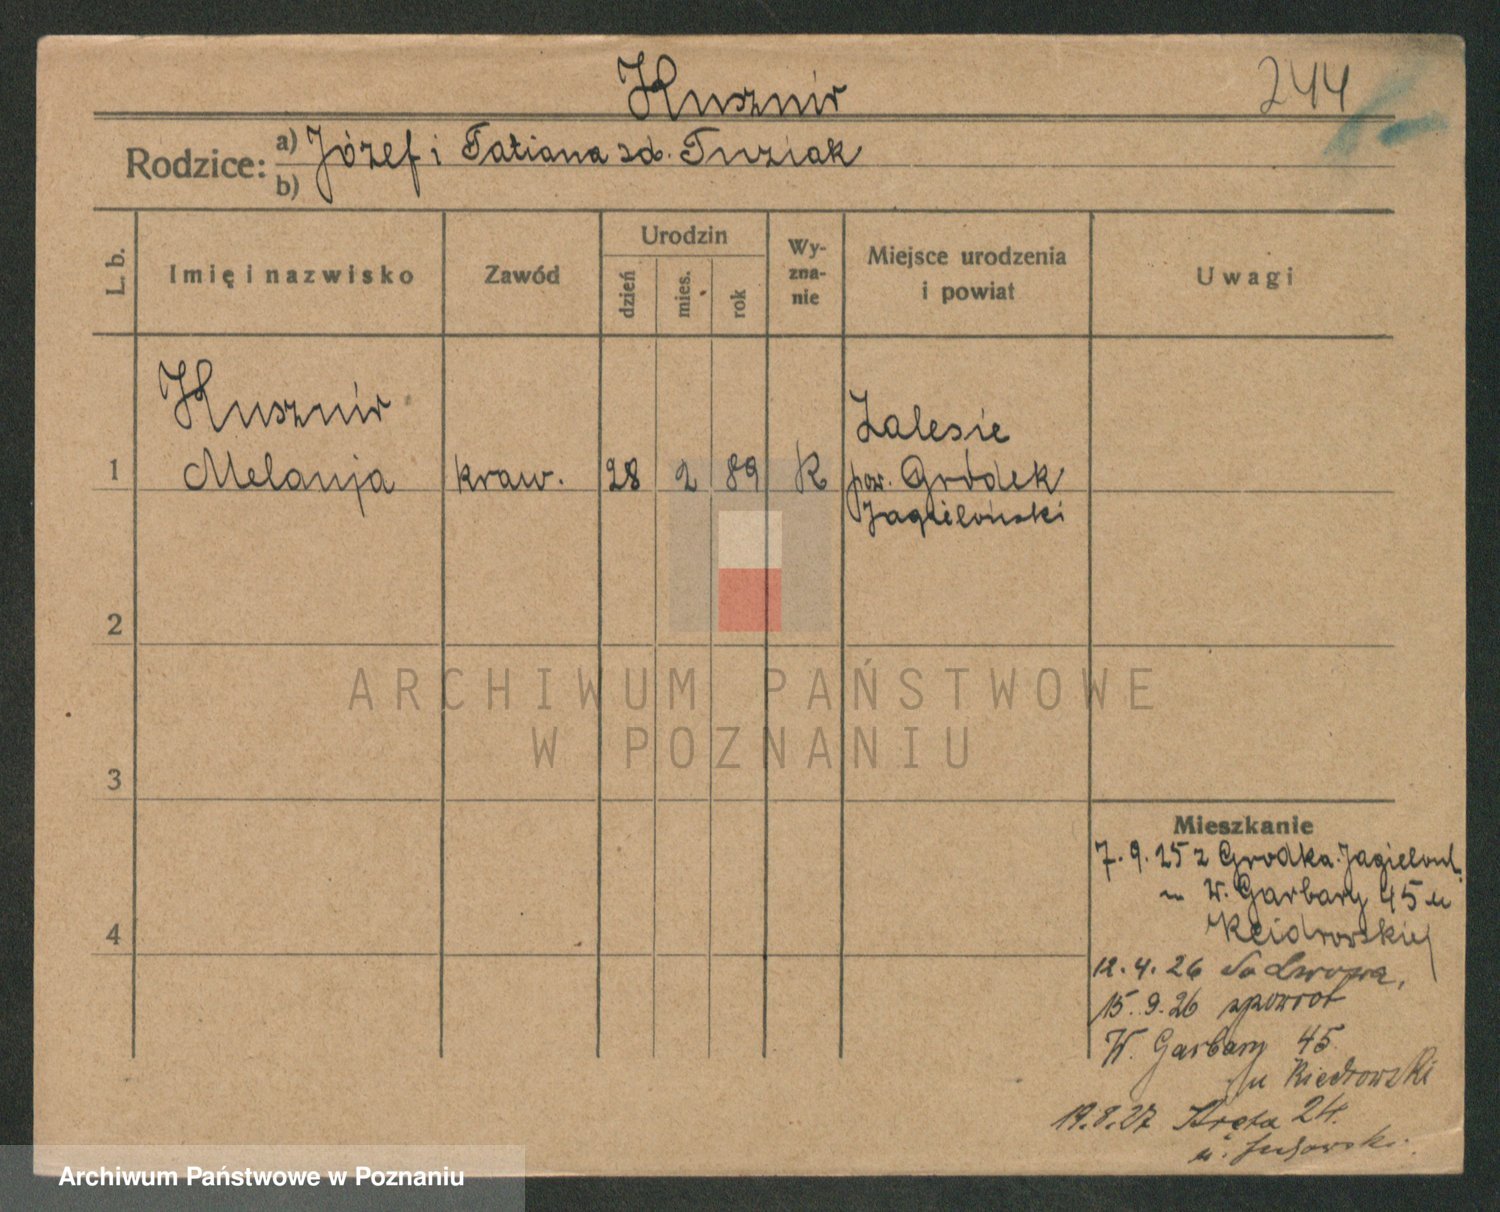 Kusznir
244
Rodzice: a) Józef i Tatiana zd. Tuziak
b)
L. b.
Imię i nazwisko
Zawód
Urodzin
dzień
mies.
rok
Wy-
zna-
nie
Miejsce urodzenia
i powiat
Uwagi
Kusznir
1 Melanja kraw. 28 2 89 R
Zalesie
pow. Gródek
Jagieloński
2
3
4
ARCHIWUM PAŃSTWOWE
W POZNANIU
Mieszkanie
7.9.25 z Grodka Jagielońs.
W. Garbary 45 u
12.4.26 do Lwowa,
15.9.26 zpowrot
W. Garbary 45
u Kiedrowski
19.8.27 Kręta 24.
u.
Archiwum Państwowe w Poznaniu